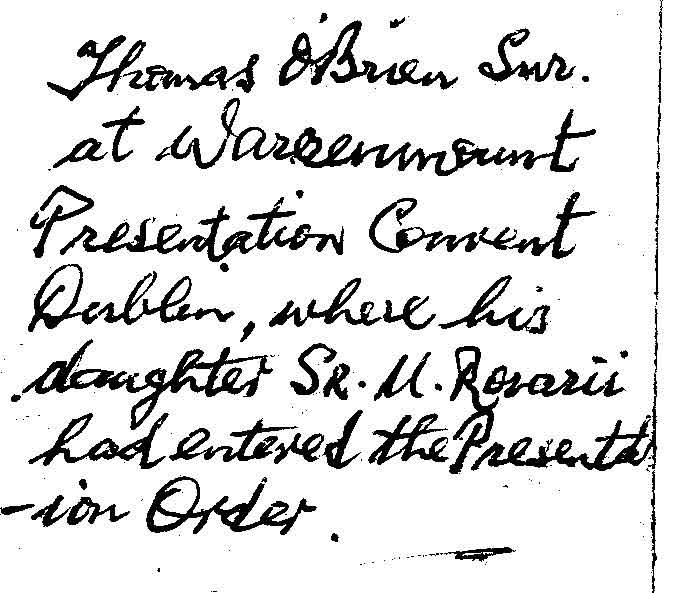 Thomas O'Brien Snr.
at Warrenmount
Presentation Convent
Dublin, where his
daughter Sr. M. Rosarii
had entered the Presentat
-ion Order.